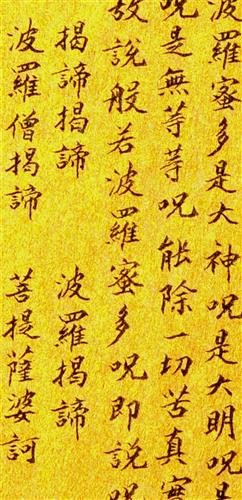 波羅蜜多是大神呪是大明呪是
呪是無等等呪能除一切苦真實
故說般若波羅蜜多呪即說呪
揭諦揭諦 波羅揭諦
波羅僧揭諦 菩提薩婆訶